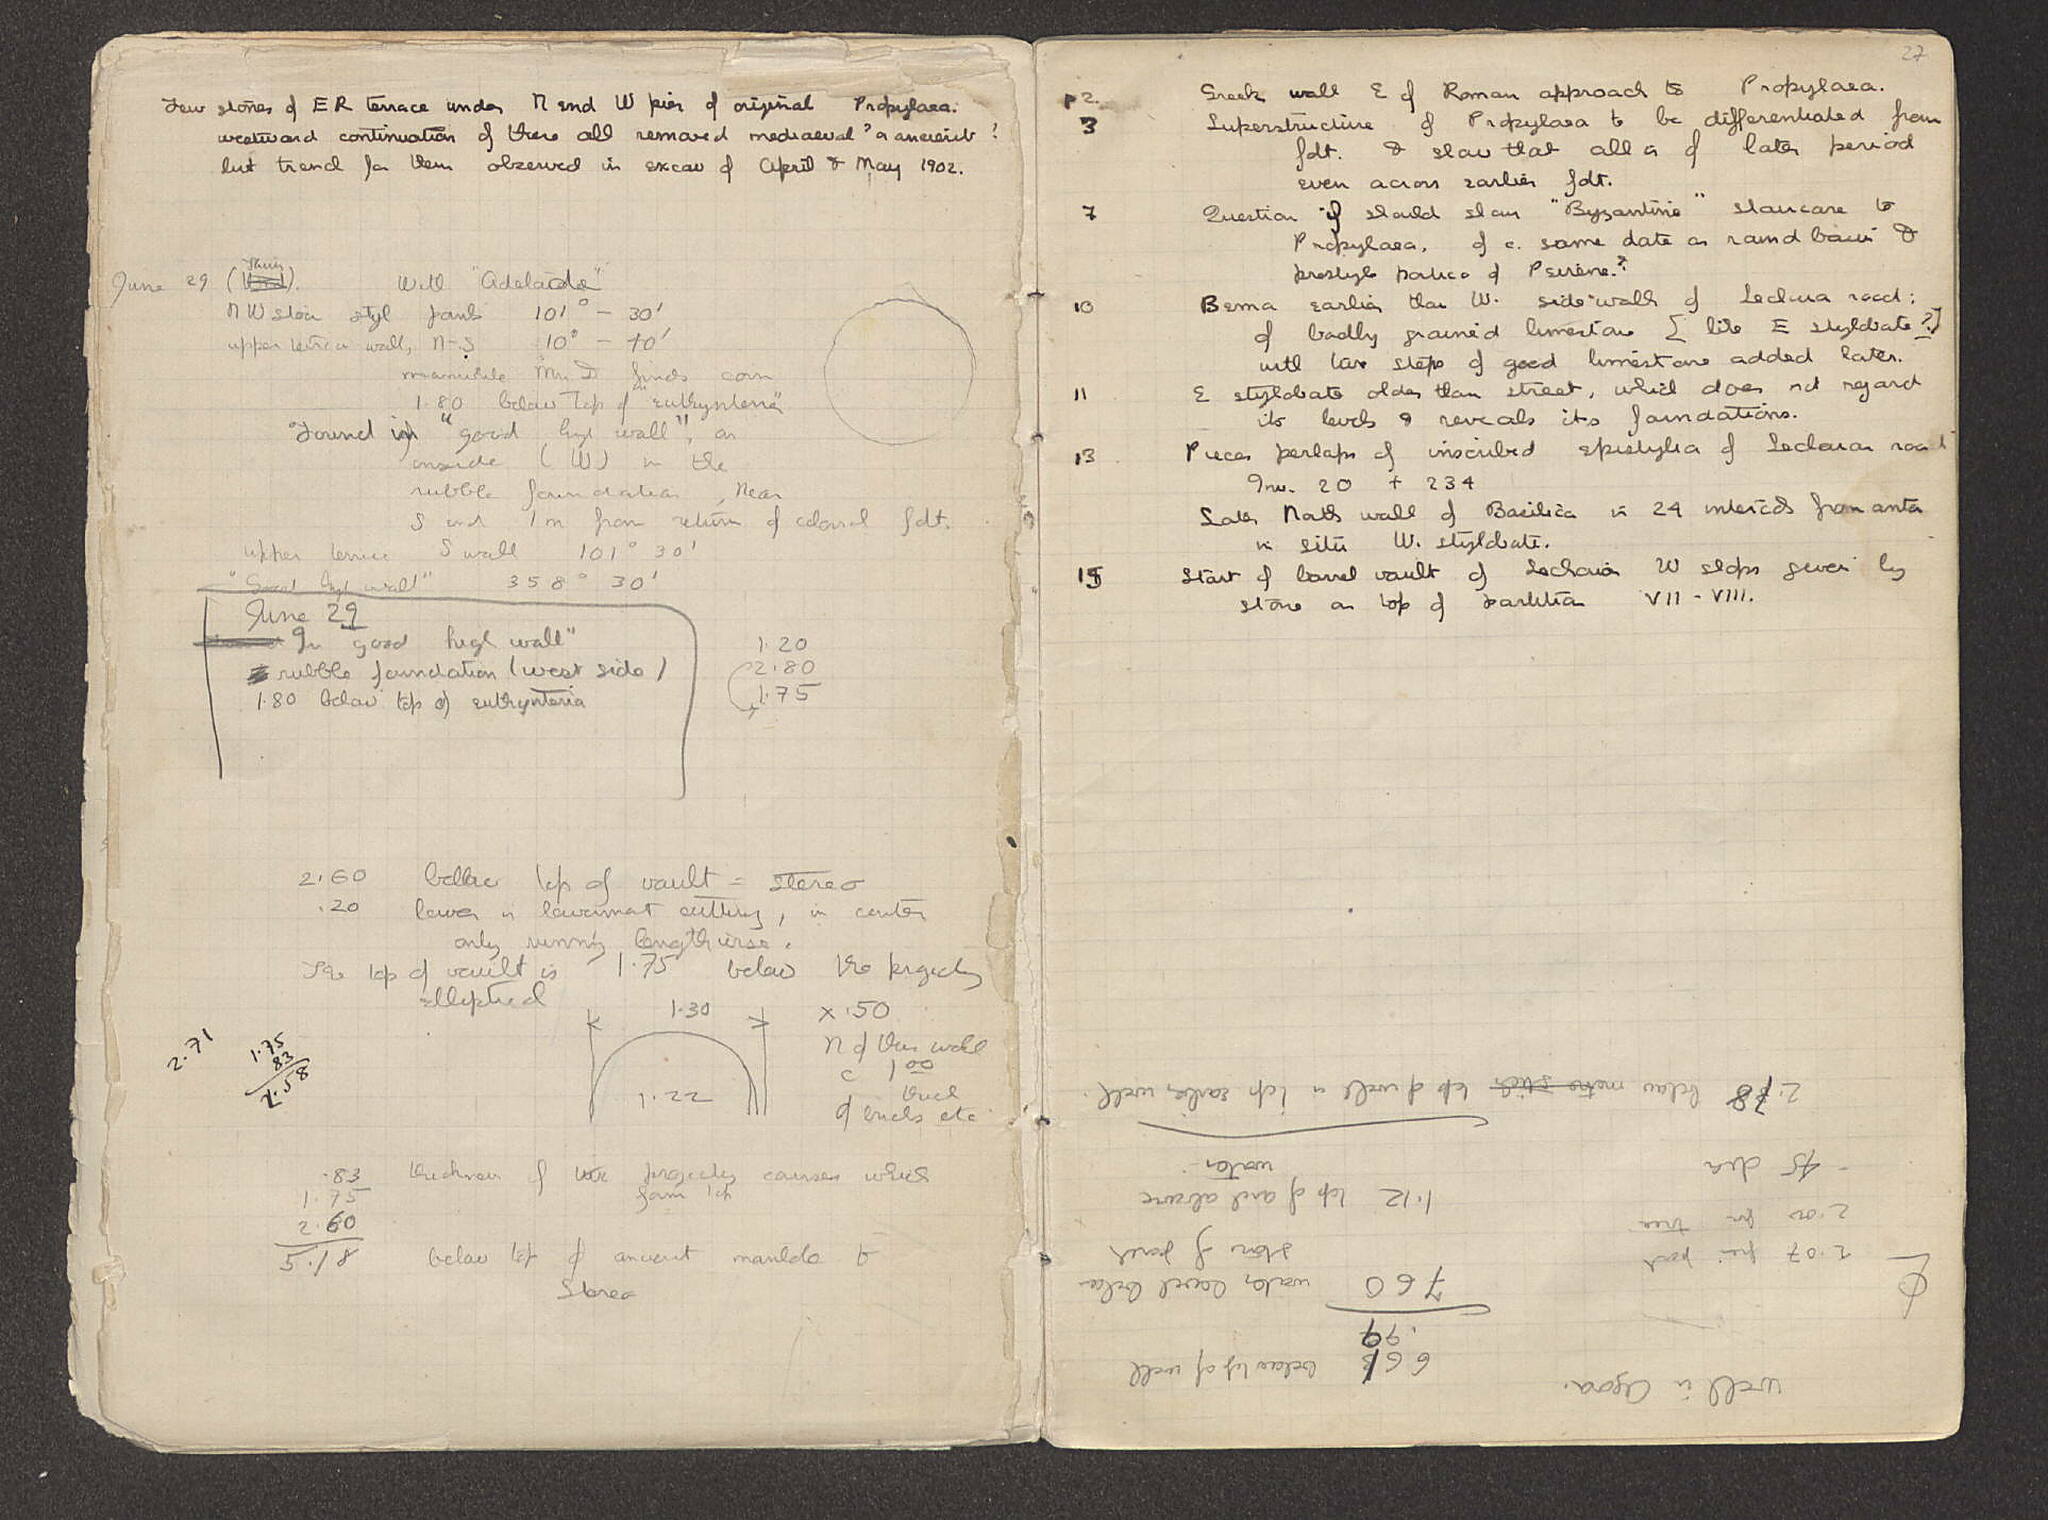 Few stones of ER terrace under N end W pier of original Propylaea.
westward continuation of these all removed mediaeval? or ancient?
but trend for them observed in excav of April & May 1902.
June 29 (Thurs). With "Adelaide"
NW stoa styl 101° - 30'
upper terrace wall, N-S 10° - 40'
meanwhile Mr. D finds coin
1.80 below top of "euthynteria"
Found in "good high wall", on
inside (W) in the
rubble foundation, near
S end 1 m from return of colonnal fdt.
upper terrace S wall 101° 30'
"Good high wall" 358° 30'
June 29
In good high wall"
rubble foundation (west side)
1.80 below top of euthynteria
1.20
2.80
1.75
2.60 below top of vault = stereo
.20 lower is lowermost cutting, in center
only running lengthwise.
The top of vault is 1.75 below the projecting
elliptical
1.30 x .50
N of this wall
c 1.00
1.22
of bricks etc
2.71
1.75
83
2.58
.83 thickness of projecting courses which
form top
1.75
2.60
5.18 below top of ancient manhole to
Stereo
27
p 2. Greek wall E of Roman approach to Propylaea.
3 Superstructure of Propylaea to be differentiated from
fdt. & show that all is of later period
even across earlier fdt.
7 Question if should show "Byzantine" staircase to
Propylaea, of c. same date as round basin &
prostyle portico of Peirene.?
10 Bema earlier than W. side walls of Lechaion road:
of badly grained limestone [like E stylobate?]
with two steps of good limestone added later.
11 E stylobate older than street, which does not regard
its levels & reveals its foundations.
13 Pieces perhaps of inscribed epistylia of Lechaion road
Inv. 20 + 234
Later North wall of Basilica is 24 intercols from anta
in situ W. stylobate.
15 Start of barrel vault of Lechaion W shops given by
stone on top of partition VII - VIII.
well in Agora.
6 61 below top of well
.99
7 60 water level below
stoa of porch
1.12 top of arch above
water
2.07 fr porch
2.00 fr tree
.45 dia
2.78 below top of well is top earlier well.